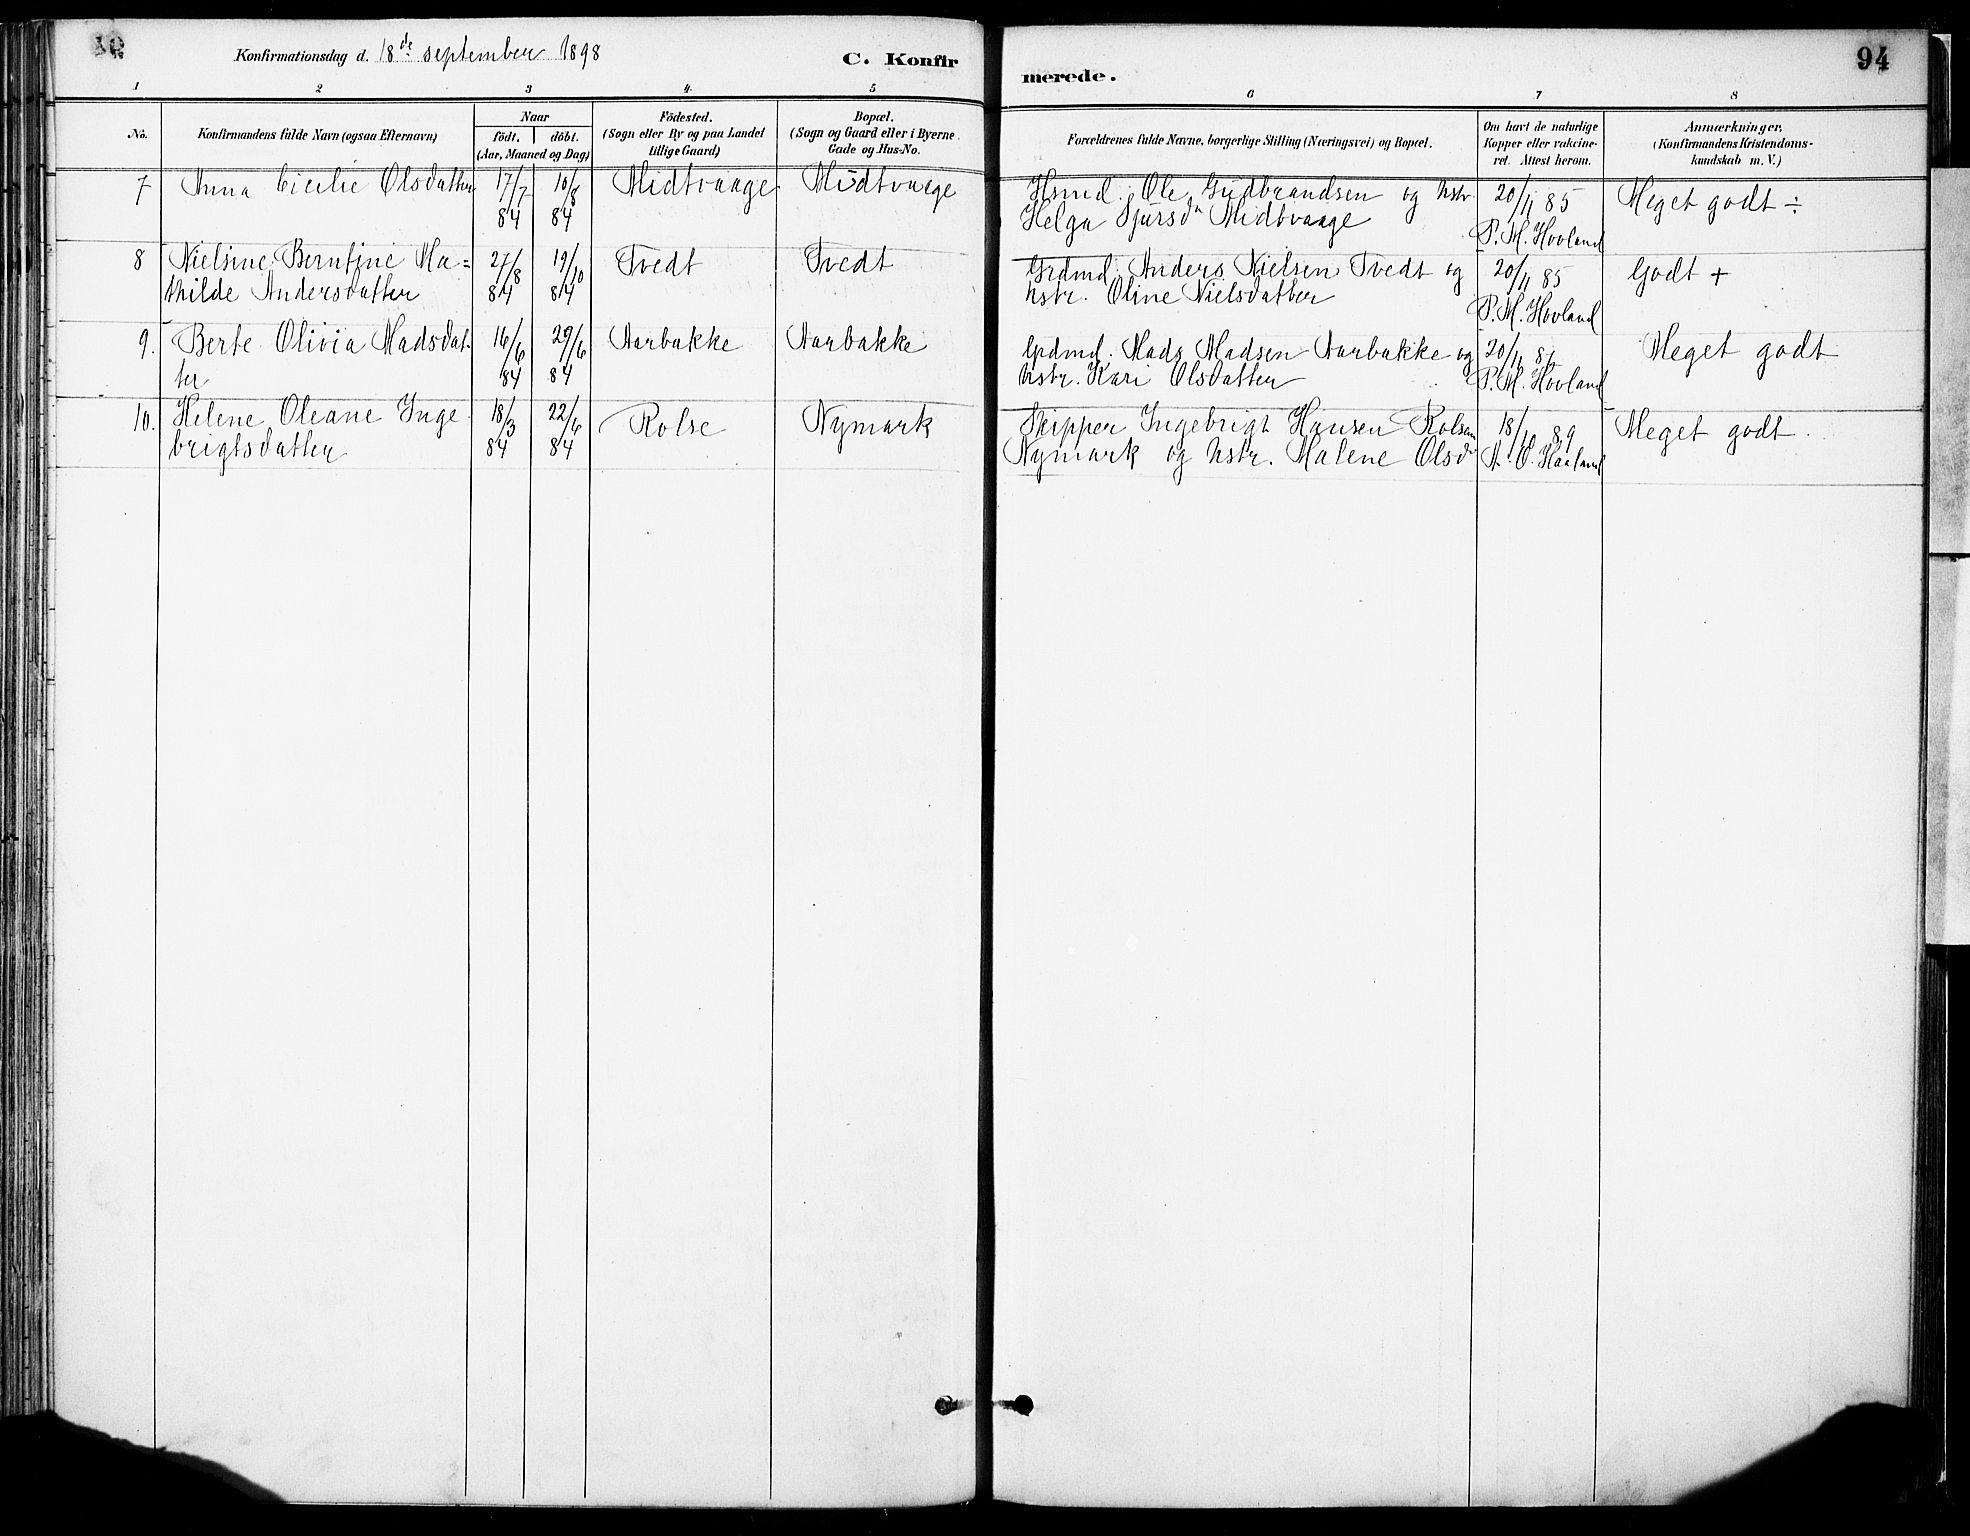 Konfirmationsdag d. 18de september 1898
C. Konfirmerede.
94
1 2 3 4 5 6 7 8
No. Konfirmandens fulde Navn (ogsaa Efternavn) Naar födt. döbt. (Aar, Maaned og Dag) Födested. (Sogn eller By og paa Landet tillige Gaard) Bopæl. (Sogn og Gaard eller i Byerne Gade og Hus-No. Forældrenes fulde Navne, borgerlige Stilling (Næringsvei) og Bopæl. Om havt de naturlige Kopper eller vakcineret. Attest herom. Anmærkninger, (Konfirmandens Kristendomskundskab m. V.)
7 Anna Cicilie Olsdatter 17/7 84 10/8 84 Midtvaage Midtvaage Hsmd. Ole Gudbrandsen og hstr. 20/11 85 Meget godt ÷
Helga Sjursdr Midtvaage P. M. Hovland
8 Nielsine Berntine Ma= 27/8 84 19/10 84 Tvedt Tvedt Grdmd. Anders Nielsen Tvedt og 20/11 85 Godt +
thilde Andersdatter hstr. Oline Nielsdatter P. M. Hovland
9. Berte Olivia Madsdat- 16/6 84 29/6 84 Aarbakke Aarbakke Grdmd. Mads Madsen Aarbakke og 20/11 Meget godt
ter hstr. Kari Olsdatter P. M. Hovland
10. Helene Oleane Inge 18/3 84 22/6 84 Rolse Nymark Skipper Ingebrigt Hansen 18/1 89 Meget godt.
brigtsdatter Nymark og hstr. Malene Olsdr A. O. Haaland